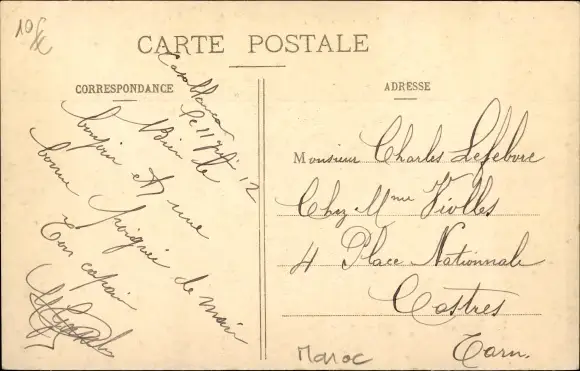 CARTE POSTALE
CORRESPONDANCE
ADRESSE
Casablanca
le 11 12
Bien de
bonjour et une
bonne poignée de main
Ton copain
Monsieur Charles Lefebvre
Chez Mme Violles
4 Place Nationnale
Castres
Tarn.
Maroc